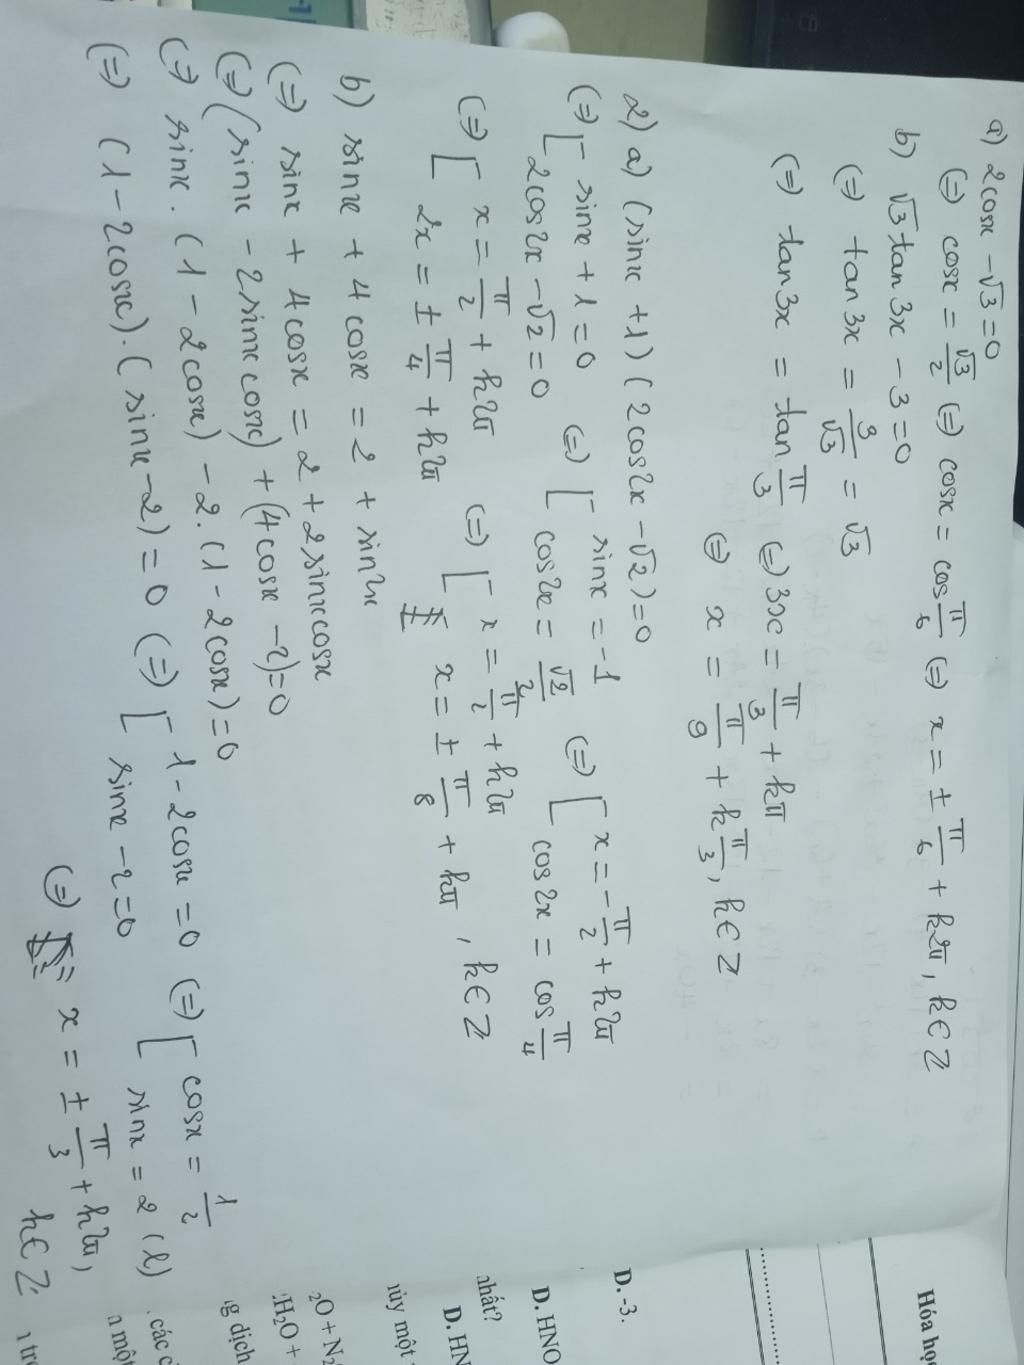 a) 2cosx - √3 = 0
(=) cosx = √3/2 (=) cosx = cos π/6 (=) x = ± π/6 + k2π, k ∈ Z
b) √3 tan3x - 3 = 0
(=) tan3x = 3/√3 = √3
(=) tan3x = tan π/3 (=) 3x = π/3 + kπ
(=) x = π/9 + k π/3, k ∈ Z
2) a) (sinx + 1)(2cos2x - √2) = 0
(=) [ sinx + 1 = 0 (=) [ sinx = -1 (=) [ x = - π/2 + k2π
2cos2x - √2 = 0 cos2x = √2/2 cos2x = cos π/4
(=) [ x = π/2 + k2π (=) [ x = π/2 + k2π
2x = ± π/4 + k2π x = ± π/8 + kπ, k ∈ Z
b) sinx + 4cosx = 2 + sin2x
(=) sinx + 4cosx = 2 + 2sinxcosx
(=) (sinx - 2sinxcosx) + (4cosx - 2) = 0
(=) sinx. (1 - 2cosx) - 2. (1 - 2cosx) = 0
(=) (1 - 2cosx). (sinx - 2) = 0 (=) [ 1 - 2cosx = 0 (=) [ cosx = 1/2
sinx - 2 = 0 sinx = 2 (l)
(=) x = ± π/3 + k2π,
k ∈ Z
Hóa họ
D. -3.
D. HNO
nhất?
D. HN
hủy một
₂O + N₂
H₂O +
g dịch
các c
một
tro